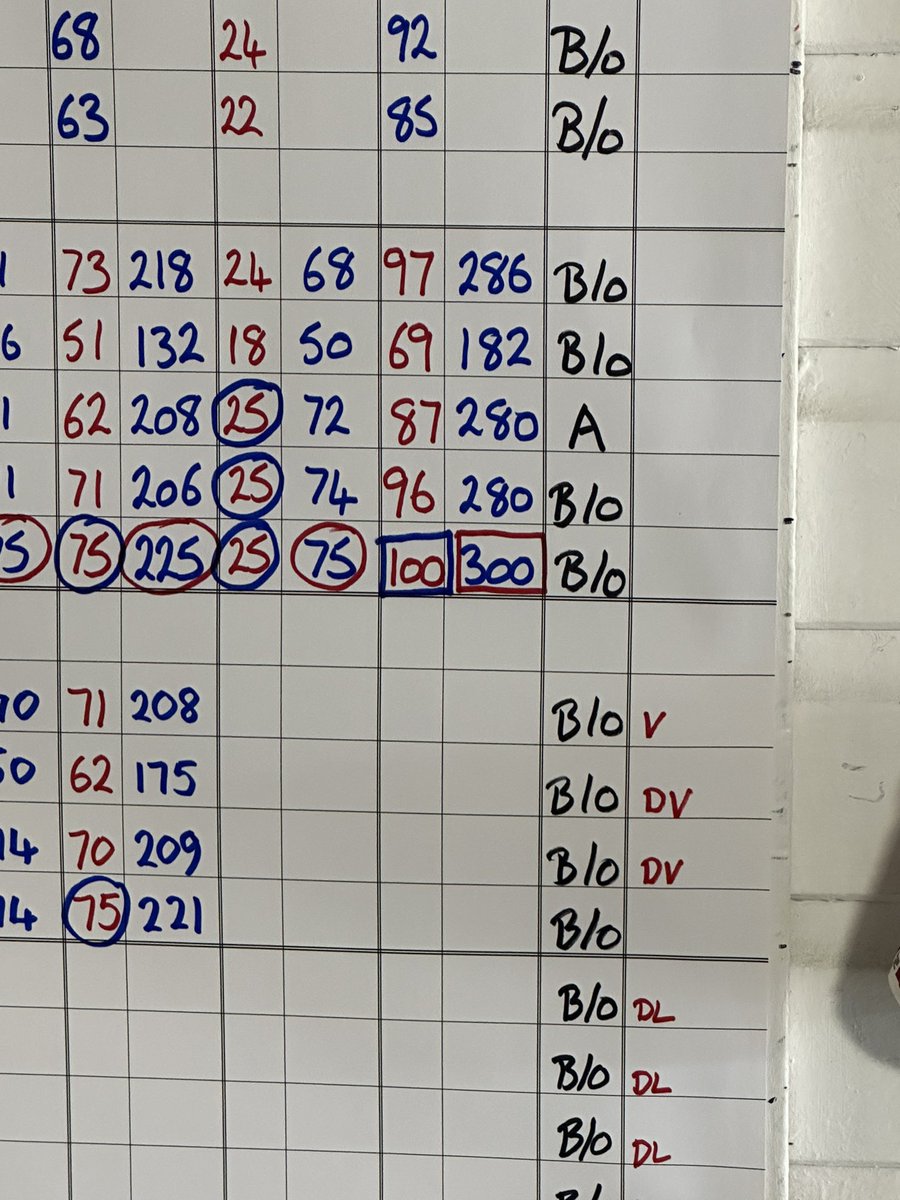 68 24 92 B/o
63 22 85 B/o
73 218 24 68 97 286 B/o
6 51 132 18 50 69 182 B/o
1 62 208 25 72 87 280 A
1 71 206 25 74 96 280 B/o
5 75 225 25 75 100 300 B/o
0 71 208 B/o V
50 62 175 B/o DV
14 70 209 B/o DV
14 75 221 B/o
B/o DL
B/o DL
B/o DL